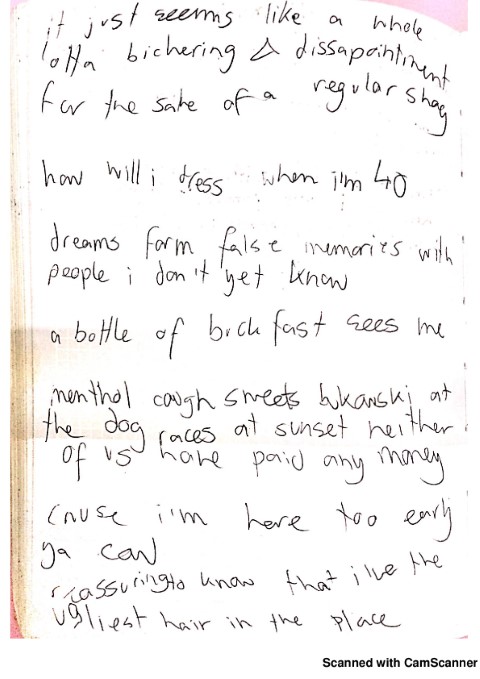 it just seems like a whole
lotta bichering & dissapointment
for the sake of a regular shag
how will i dress when i'm 40
dreams form false memories with
people i don't yet know
a bottle of buckfast sees me
menthol cough sweets bukowski at
the dog races at sunset neither
of us have paid any money
cause i'm here too early
ya cow
reassuring to know that i've the
ugliest hair in the place
Scanned with CamScanner